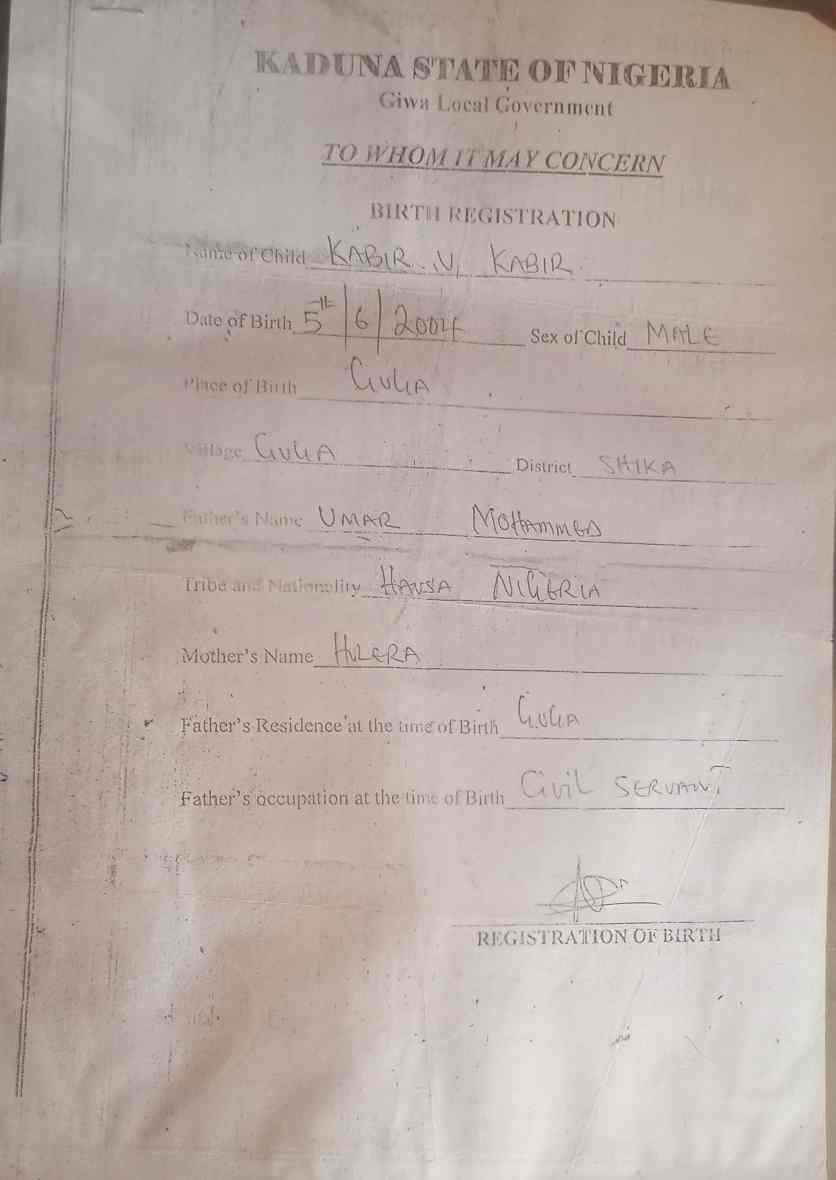 KADUNA STATE OF NIGERIA
Giwa Local Government
TO WHOM IT MAY CONCERN
BIRTH REGISTRATION
Name of Child KABIR .U. KABIR
Date of Birth 5th/6/2004 Sex of Child MALE
Place of Birth GUGA
Village GUGA District SHIKA
Father's Name UMAR MOHAMMED
Tribe and Nationality HAUSA NIGERIA
Mother's Name HULERA
Father's Residence at the time of Birth GUGA
Father's occupation at the time of Birth Civil SERVANT
REGISTRATION OF BIRTH